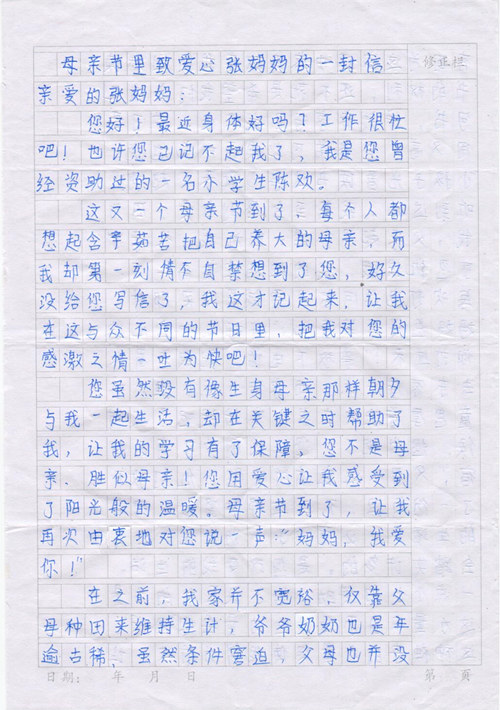 母亲节里致爱心张妈妈的一封信
修正栏
亲爱的张妈妈：
您好！最近身体好吗？工作很忙
吧！也许您已记不起我了，我是您曾
经资助过的一名小学生陈欢。
这又一个母亲节到了，每个人都
想起含辛茹苦把自己养大的母亲，而
我却第一刻情不自禁想到了您，好久
没给您写信了，我这才记起来，让我
在这与众不同的节日里，把我对您的
感激之情一吐为快吧！
您虽然没有像生身母亲那样朝夕
与我一起生活，却在关键之时帮助了
我，让我的学习有了保障。您不是母
亲、胜似母亲！您用爱心让我感受到
了阳光般的温暖。母亲节到了，让我
再次由衷地对您说一声：“妈妈，我爱
你！”
在之前，我家并不宽裕，仅靠父
母种田来维持生计，爷爷奶奶也是年
逾古稀，虽然条件窘迫，父母也并没
日期： 年 月 日 第 页